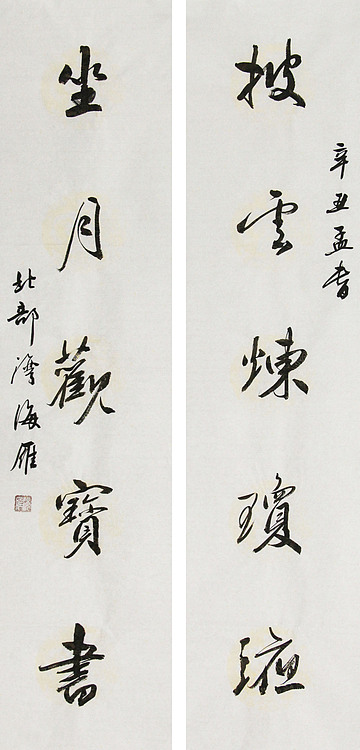 辛丑孟春
披雲煉瓊液
坐月觀寶書
北部灣海雁